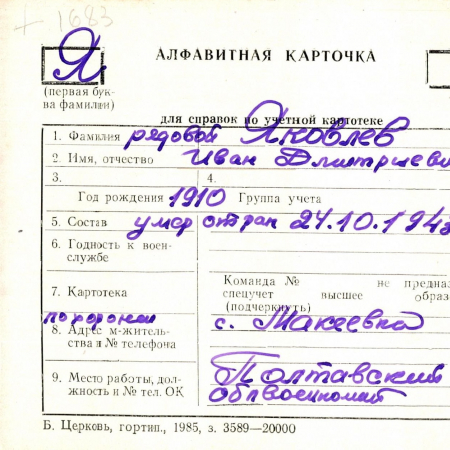 + 1683
Я
АЛФАВИТНАЯ КАРТОЧКА
(первая бук-
ва фамилии)
для справок по учетной картотеке
1. Фамилия рядовой Яковлев
2. Имя, отчество Иван Дмитриеви
3. 4.
Год рождения 1910 Группа учета
5. Состав умер от ран 24.10.194
6. Годность к воен-
службе
Команда № не предназ
7. Картотека спецучет высшее образ
(подчеркнуть)
похоронен с. Макеевка
8. Адрес м-житель-
ства и № телефона
Полтавский
9. Место работы, дол-
жность и № тел. ОК
облвоенкомат
Б. Церковь, гортип., 1985, з. 3589—20000